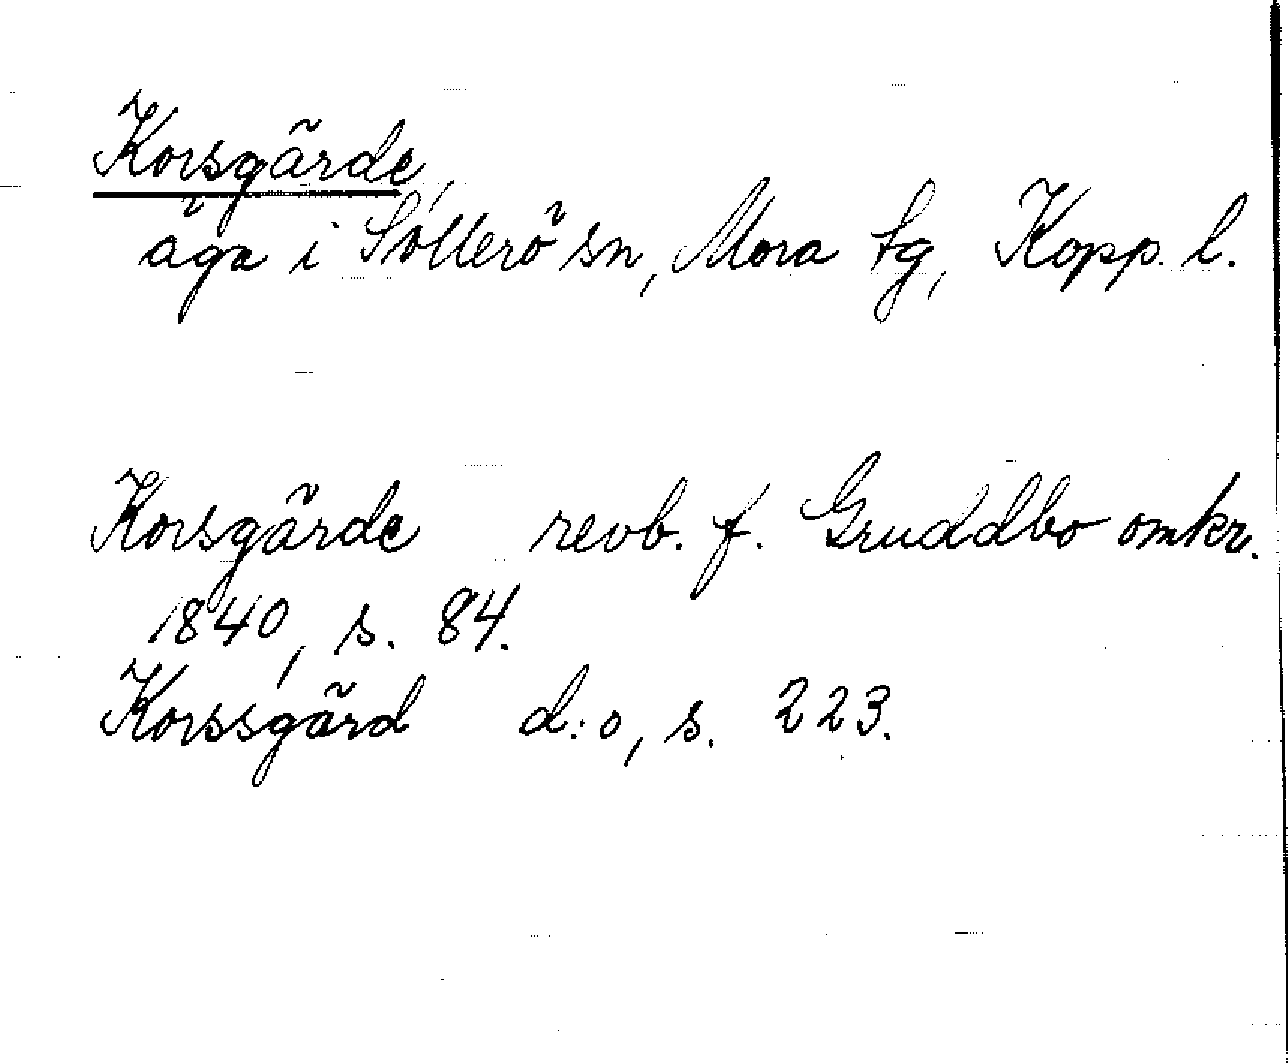 Korsgärde,
äga i Sóllerö sn, Mora tg, Kopp. l.
Korsgärde revb. f. Gruddbo omkr.
1840, s. 84.
Korssgärd d:o, s. 223.